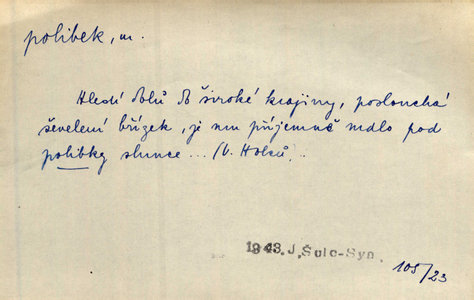 polibek, m.
Hledí dolů do široké krajiny, poslouchá
ševelení břízek, je mu příjemně mdlo pod
polibky slunce... (V. Holců).
1943. J. Šolc-Syn.
105/23